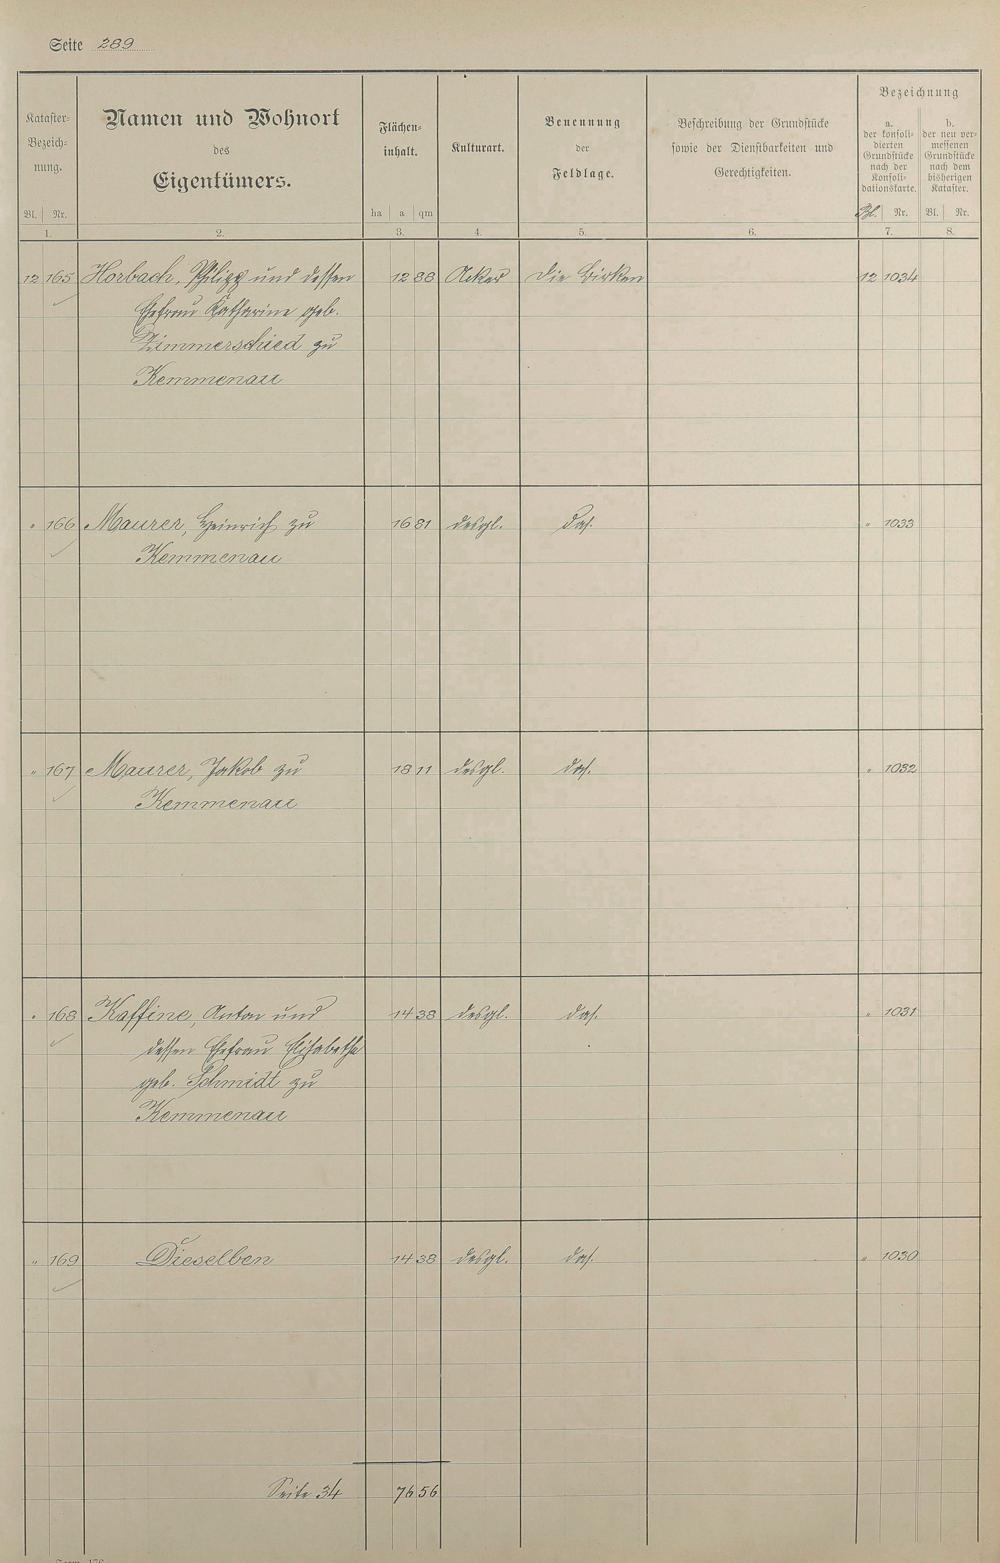 Seite 289
Kataster-
Bezeich-
nung.
Bl. Nr.
1.
Namen und Wohnort
des
Eigentümers.
2.
Flächen-
inhalt.
ha a qm
3.
Kulturart.
4.
Benennung
der
Feldlage.
5.
Beschreibung der Grundstücke
sowie der Dienstbarkeiten und
Gerechtigkeiten.
6.
Bezeichnung
a.
der konsoli-
dierten
Grundstücke
nach der
Konsoli-
dationskarte.
Bl. Nr.
7.
b.
der neu ver-
messenen
Grundstücke
nach dem
bisherigen
Kataster.
Bl. Nr.
8.
12 165 Horbach, Philipp und dessen 12 88 Acker Die Birken 12 1034
Ehefrau Katharine geb.
Zimmerschied zu
Kemmenau
" 166 Maurer, Heinrich zu 16 81 desgl. das. " 1033
Kemmenau
" 167 Maurer, Jakob zu 18 11 desgl. das. " 1032
Kemmenau
" 168 Kaffine, Anton und 14 38 desgl. das. " 1031
dessen Ehefrau Elisabethe
geb. Schmidt zu
Kemmenau
" 169 Dieselben 14 38 desgl. das. " 1030
Seite 34 76 56